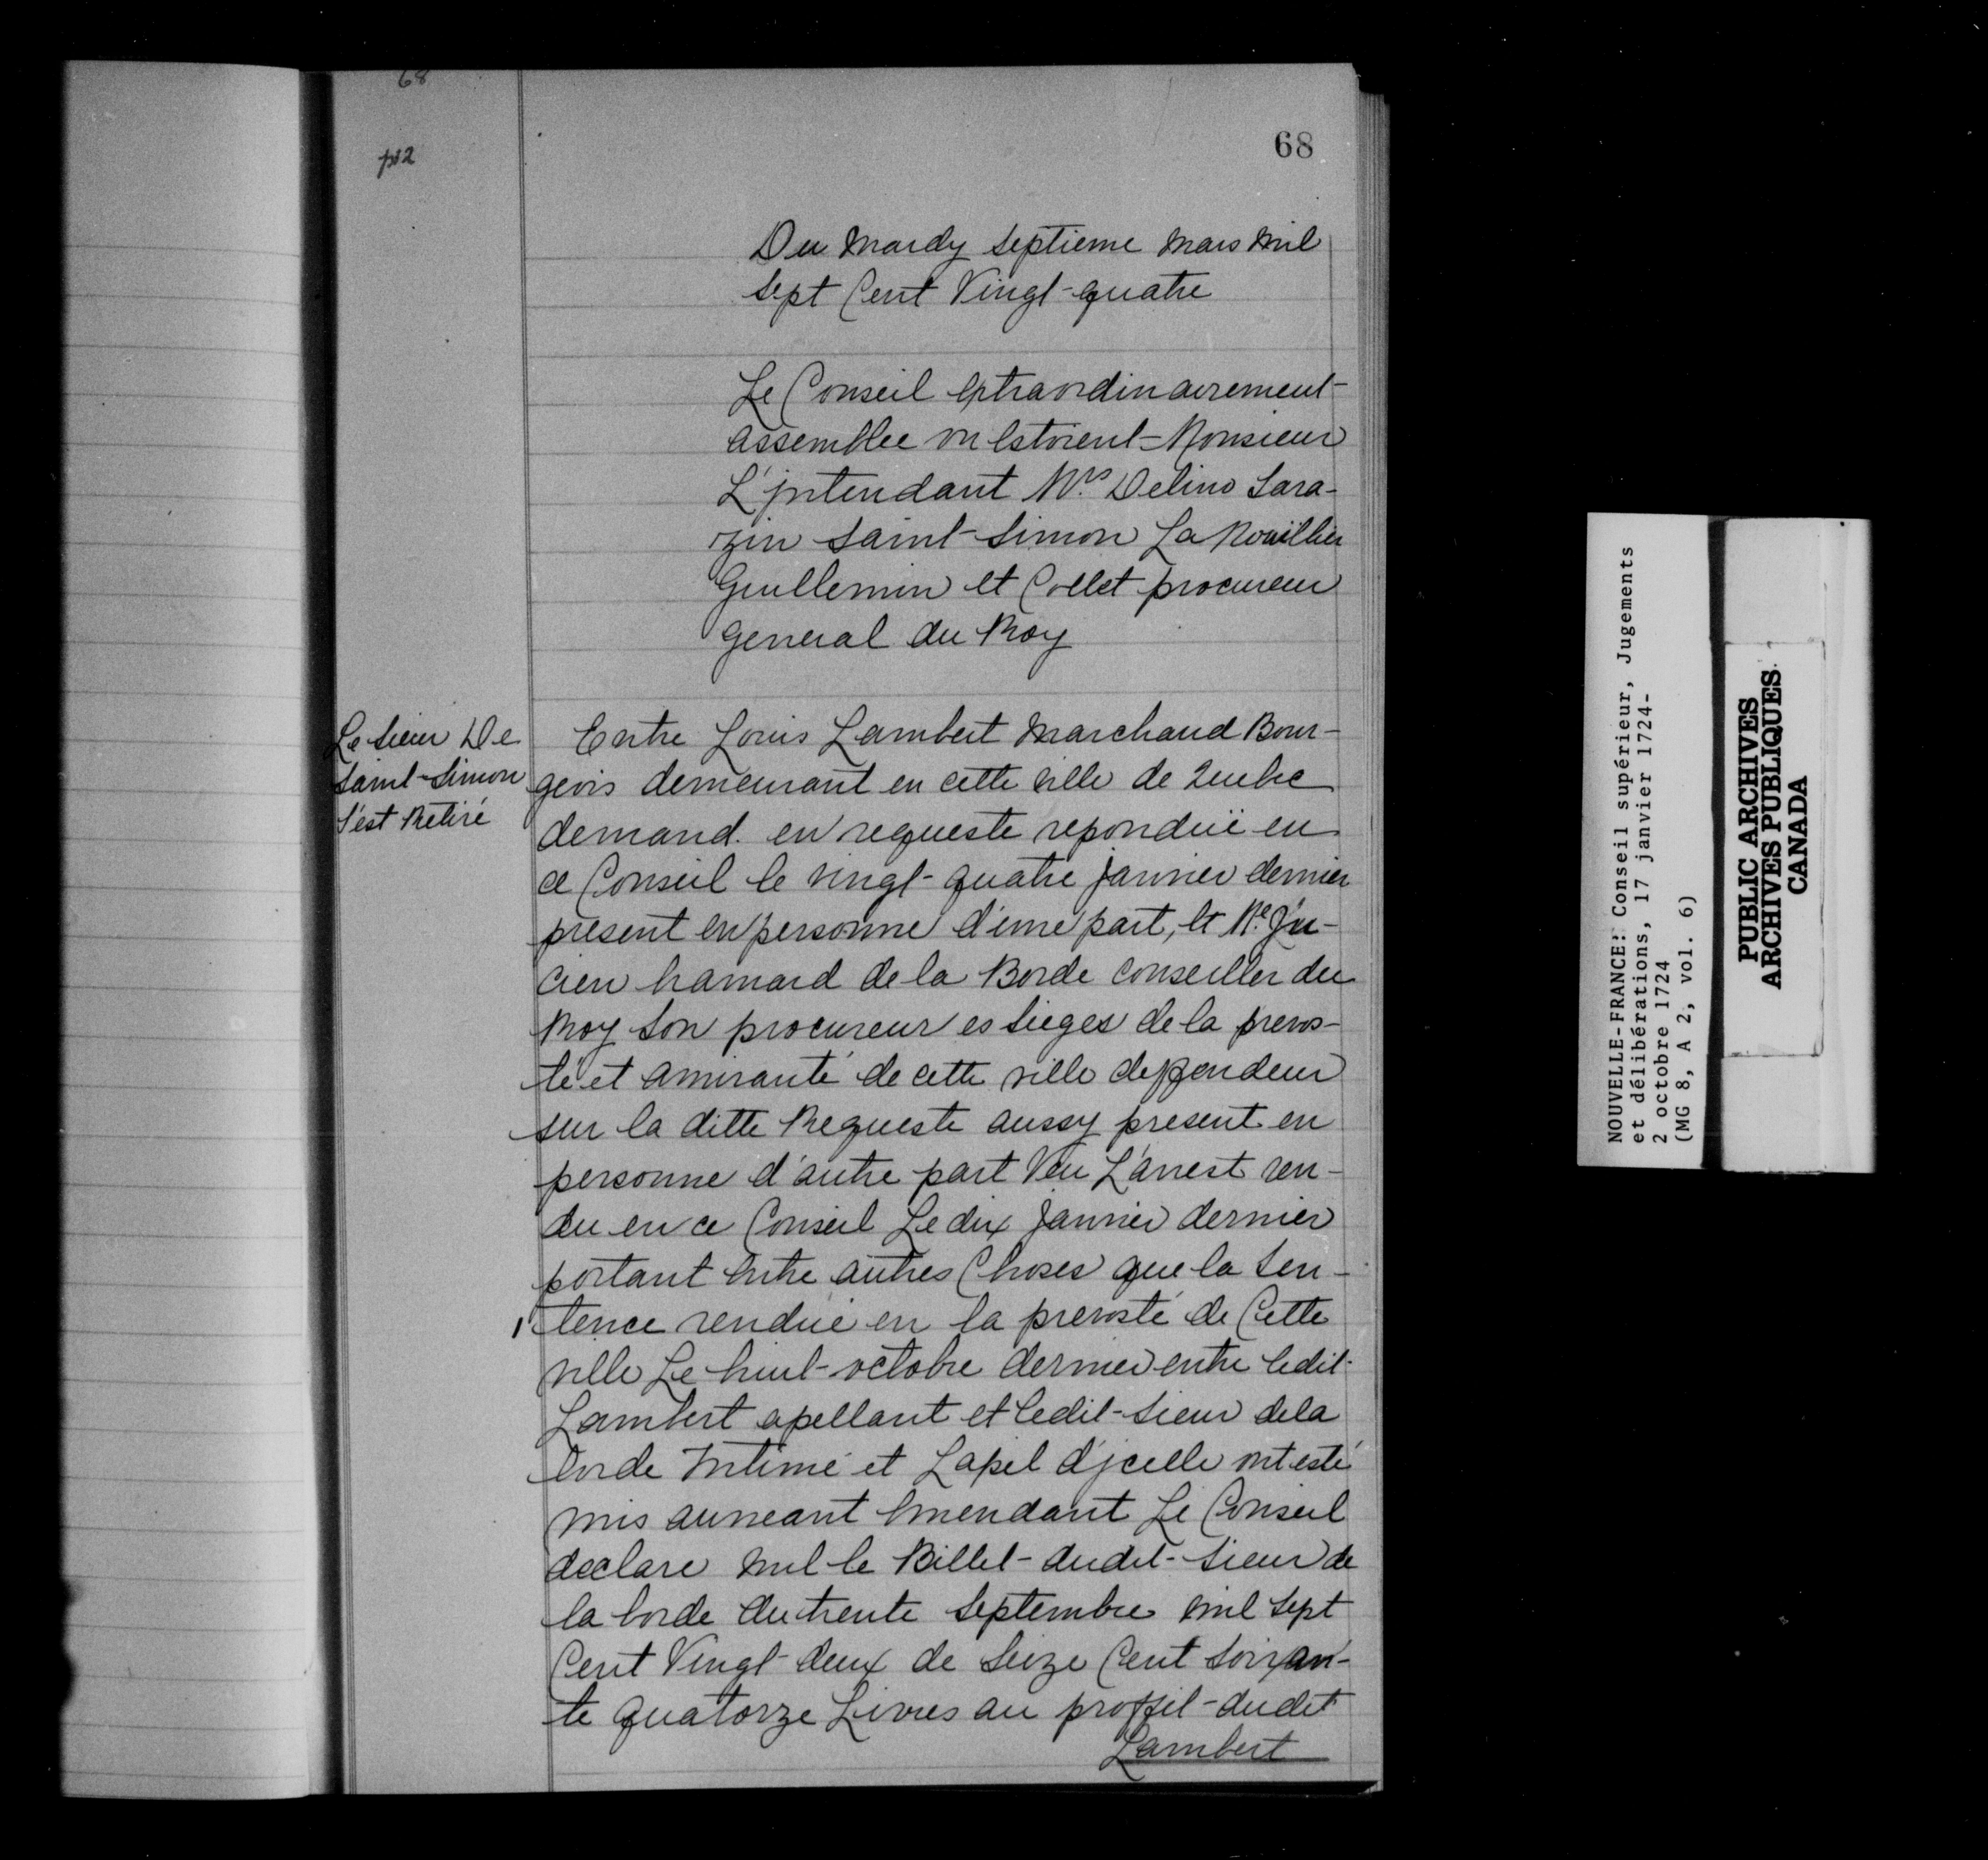 68
p32
68
Du Mardy septieme Mars Mil
sept Cent Vingt-quatre
Le Conseil extraordinairement
assemblee ou Estoient Monsieur
L'jntendant Mrs Delino Sara-
zin Saint-Simon La Rouillier
Guillemin et Collet procureur
General du Roy
Le Sieur De
Saint-Simon
s'est Retiré
Entre Louis Lambert Marchand Bour-
geois demeurant en cette ville de Quebec
demand. en requeste repondüe en
ce Conseil le vingt-quatre janvier dernier
present en personne d'une part, et Me Ju-
cien hamard de la Borde Conseiller du
Roy son procureur es sieges de la prevos-
té et amirauté de cette ville deffendeur
sur la ditte Requeste aussy present en
personne d'autre part Veu L'arrest ren-
du en ce Conseil Le dix Janvier dernier
portant Entre autres Choses que la Sen-
tence rendüe en la prevosté de Cette
ville Le huit octobre dernier entre ledit
Lambert apellant et ledit Sieur dela
borde Intimé et Lapel d'jcelle ont esté
mis au neant Emendant Le Conseil
declare nul le Billet dudit Sieur de
la borde du trente Septembre mil Sept
Cent Vingt deux de Seize Cent soixan-
te quatorze Livres au proffit dudit
Lambert
NOUVELLE-FRANCE: Conseil supérieur, Jugements
et délibérations, 17 janvier 1724-
2 octobre 1724
(MG 8, A 2, vol. 6)
PUBLIC ARCHIVES
ARCHIVES PUBLIQUES
CANADA